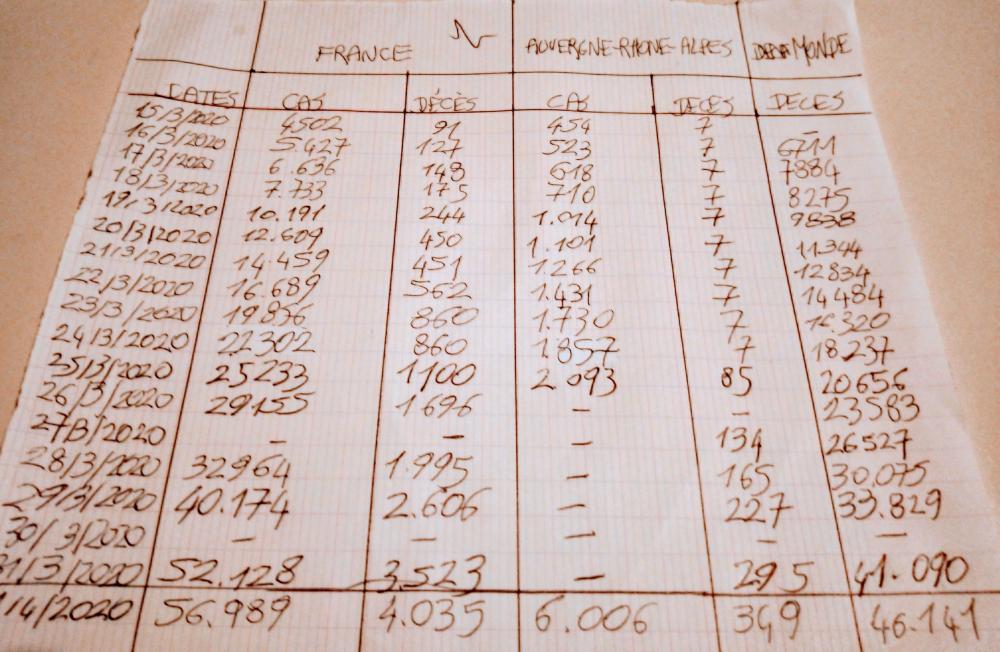 FRANCE AUVERGNE-RHONE-ALPES MONDE
DATES CAS DÉCÈS CAS DECES DECES
15/3/2020 4502 91 454 7 –
16/3/2020 5.427 127 523 7 6711
17/3/2020 6.636 148 618 7 7884
18/3/2020 7.733 175 710 7 8275
19/3/2020 10.191 244 1.014 7 9838
20/3/2020 12.609 450 1.101 7 11344
21/3/2020 14.459 451 1.266 7 12834
22/3/2020 16.689 562 1.431 7 14484
23/3/2020 19.836 860 1.730 7 16.320
24/3/2020 22302 860 1.857 7 18237
25/3/2020 25233 1100 2.093 85 20656
26/3/2020 29155 1696 – – 23583
27/3/2020 – – – 134 26527
28/3/2020 32964 1.995 – 165 30.075
29/3/2020 40.174 2.606 – 227 33.829
30/3/2020 – – – – –
31/3/2020 52.128 3.523 – 295 41.090
1/4/2020 56.989 4.035 6.006 349 46.141